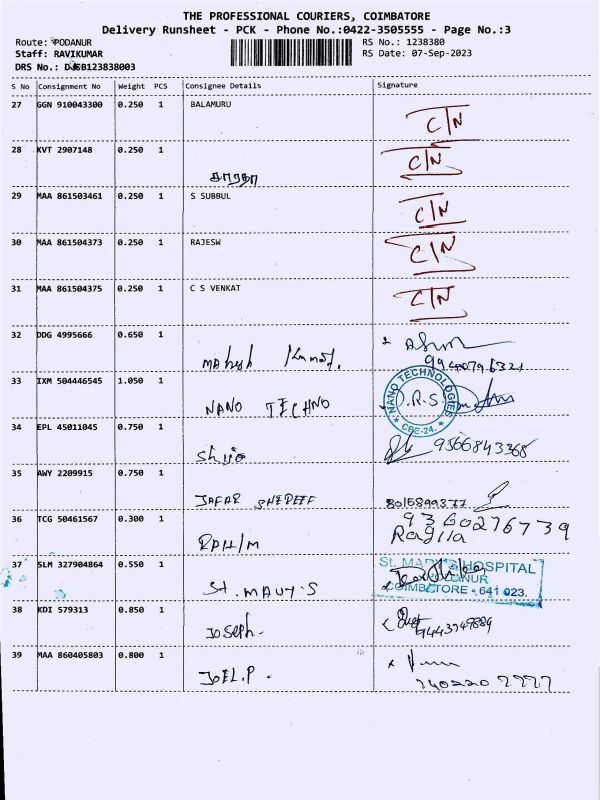 THE PROFESSIONAL COURIERS, COIMBATORE
Delivery Runsheet - PCK - Phone No.:0422-3505555 - Page No.:3
Route: PODANUR
RS No.: 1238380
Staff: RAVIKUMAR
RS Date: 07-Sep-2023
S No Consignment No Weight PCS Consignee Details Signature
27 GGN 910043300 0.250 1 BALAMURU C/N
28 KVT 2907148 0.250 1 C/N
29 MAA 861503461 0.250 1 S SUBBUL C/N
30 MAA 861504373 0.250 1 RAJESW C/N
31 MAA 861504375 0.250 1 C S VENKAT C/N
32 DDG 4995666 0.650 1
33 IXM 504446545 1.050 1 NANO TECHNO
NANO TECHNOLOGIES
CBE-24.
34 EPL 45011045 0.750 1 9566843368
35 AWY 2209915 0.750 1 JAFAR SHEREEF
36 TCG 50461567 0.300 1 RAHIM
9360276739
37 SLM 327904864 0.550 1 ST. MARY'S
St. MARY'S HOSPITAL
PODANUR
COIMBATORE - 641 023.
38 KDI 579313 0.850 1 Joseph.
39 MAA 860405803 0.800 1 JOEL.P.